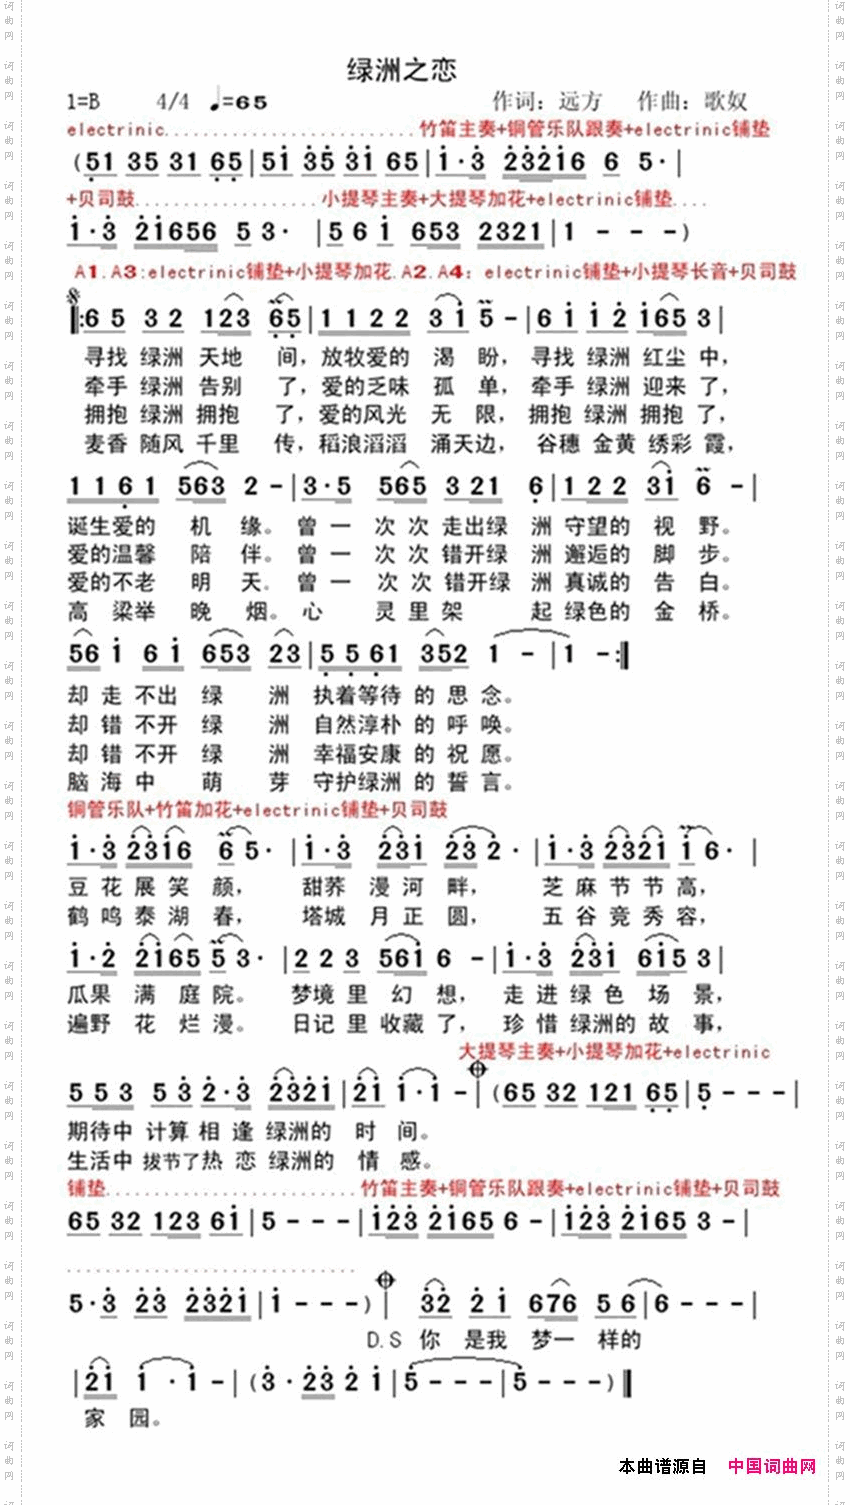 绿洲之恋
1=B 4/4 ♩=65 作词：远方 作曲：歌奴
electrinic......................竹笛主奏+铜管乐队跟奏+electrinic铺垫
(51 35 31 65|51 35 31 65|1·3 23216 6 5·|
+贝司鼓...................小提琴主奏+大提琴加花+electrinic铺垫....
1·3 21656 5 3· |5 6 1 653 2321|1 - - -)
A1.A3:electrinic铺垫+小提琴加花.A2.A4：electrinic铺垫+小提琴长音+贝司鼓
‖:65 32 123 65|1122 31 5 -|61 12 165 3|
寻找 绿洲 天地 间，放牧爱的 渴 盼， 寻找 绿洲 红尘 中，
牵手 绿洲 告别 了，爱的乏味 孤 单，牵手 绿洲 迎来 了，
拥抱 绿洲 拥抱 了，爱的风光 无 限，拥抱 绿洲 拥抱 了，
麦香 随风 千里 传，稻浪滔滔 涌天边， 谷穗 金黄 绣彩 霞，
1161 563 2 -|3·5 565 3 21 6|122 31 6 -|
诞生爱的 机 缘。曾 一 次 次 走出绿 洲 守望的 视 野。
爱的温馨 陪 伴。曾 一 次 次 错开绿 洲 邂逅的 脚 步。
爱的不老 明 天。曾 一 次 次 错开绿 洲 真诚的 告 白。
高 梁举 晚 烟。心 灵 里 架 起 绿色的 金 桥。
56 1 61 653 23|5561 352 1 -|1 -:‖
却 走 不出 绿 洲 执着等待 的 思 念。
却 错 不开 绿 洲 自然淳朴 的 呼 唤。
却 错 不开 绿 洲 幸福安康 的 祝 愿。
脑 海 中 萌 芽 守护绿洲 的 誓 言。
铜管乐队+竹笛加花+electrinic铺垫+贝司鼓
1·3 2316 6 5· |1·3 231 23 2· |1·3 2321 1 6· |
豆 花 展 笑 颜， 甜荞 漫 河 畔， 芝 麻 节 节 高，
鹤 鸣 泰 湖 春， 塔城 月 正 圆， 五 谷 竞 秀 容，
1·2 2165 5 3· |2 2 3 561 6 -|1·3 231 615 3|
瓜果 满 庭 院。 梦境 里 幻 想， 走 进 绿 色 场 景，
遍野 花 烂 漫。 日记 里 收藏 了， 珍 惜 绿洲的 故 事，
大提琴主奏+小提琴加花+electrinic
5 5 3 5 3 2·3 2321|21 1·1 -|(65 32 121 65|5 - - -|
期待中 计算 相 逢 绿洲的 时 间。
生活中 拔节了热 恋 绿洲的 情 感。
铺垫..........................竹笛主奏+铜管乐队跟奏+electrinic铺垫+贝司鼓
65 32 123 61|5 - - -|123 2165 6 -|123 2165 3 -|
..............................
5·3 23 2321|1 - - -)| 32 2 1 676 5 6|6 - - -|
D.S 你 是我 梦一 样的
|21 1 ·1 -|(3·23 2 1|5 - - -|5 - - -)‖
家 园。
本曲谱源自 中国词曲网